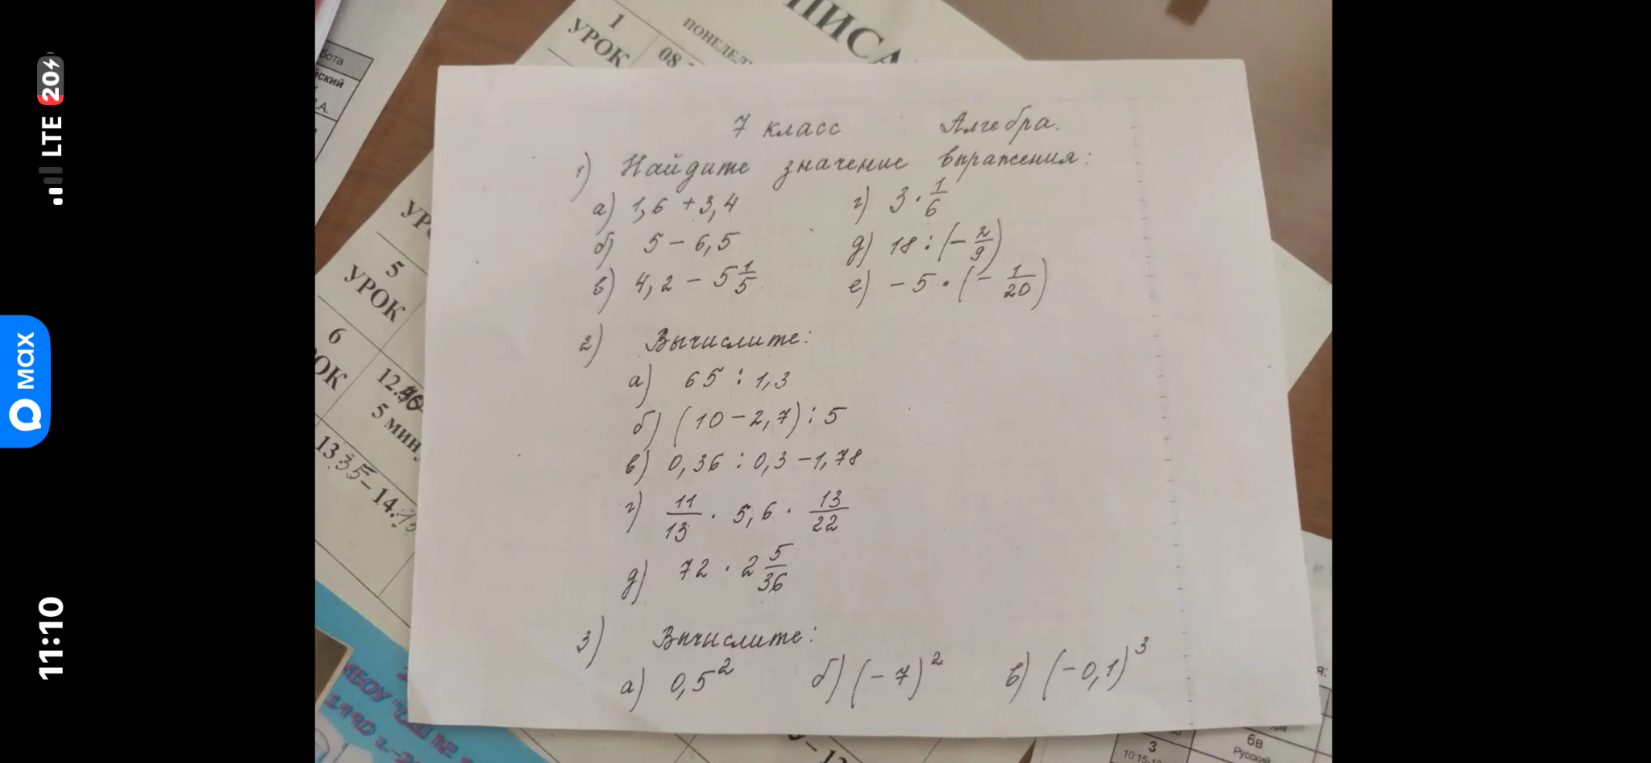 20
LTE
11:10
max
бота
1
УРОК
ПОНЕДЕЛ
08
ПИСА
5
УРОК
6
12.40
5 мин
13.35-14.15
7 класс Алгебра.
1) Найдите значение выражения:
а) 1,6 + 3,4 г) 3 · 1/6
б) 5 - 6,5 д) 18 : (- 2/9)
в) 4,2 - 5 1/5 е) - 5 · (- 1/20)
2) Вычислите:
а) 65 : 1,3
б) (10 - 2,7) : 5
в) 0,36 : 0,3 - 1,78
г) 11/13 · 5,6 · 13/22
д) 72 · 2 5/36
3) Вычислите:
а) 0,5² б) (- 7)² в) (- 0,1)³
МБОУ "СШ №
1990 г.-20
3
6в
Русский